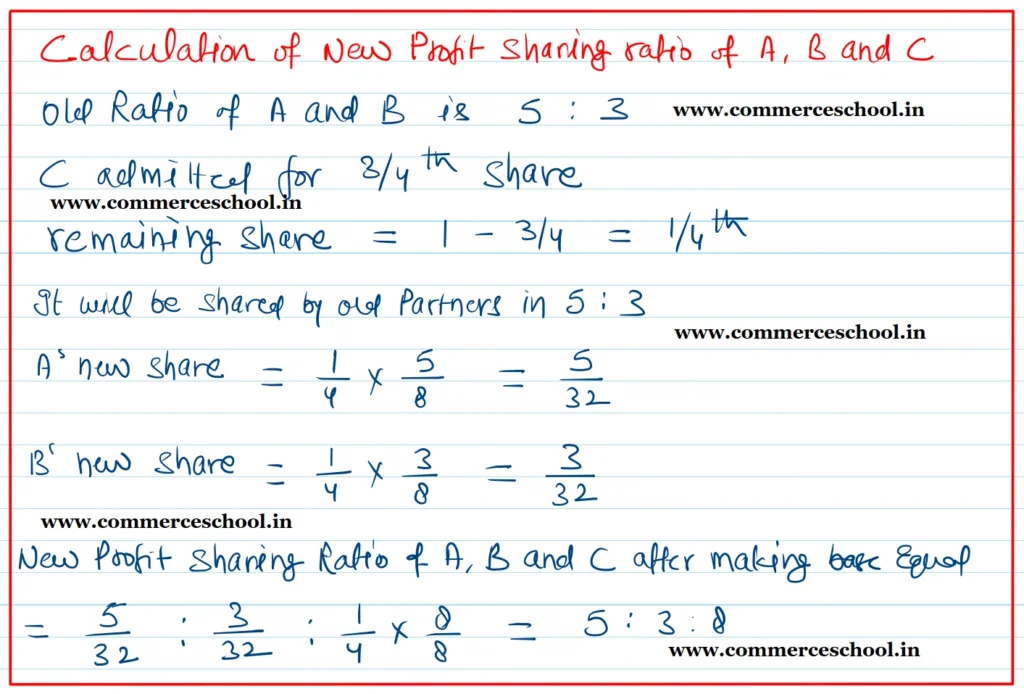 Calculation of New Profit Sharing ratio of A, B and C
Old Ratio of A and B is 5 : 3 www.commerceschool.in
C admitted for 3/4th share
www.commerceschool.in
remaining share = 1 - 3/4 = 1/4th
It will be shared by old Partners in 5 : 3
www.commerceschool.in
A's new share = 1/4 x 5/8 = 5/32
B's new share = 1/4 x 3/8 = 3/32
www.commerceschool.in
New Profit Sharing Ratio of A, B and C after making base Equal
= 5/32 : 3/32 : 1/4 x 8/8 = 5 : 3 : 8
www.commerceschool.in